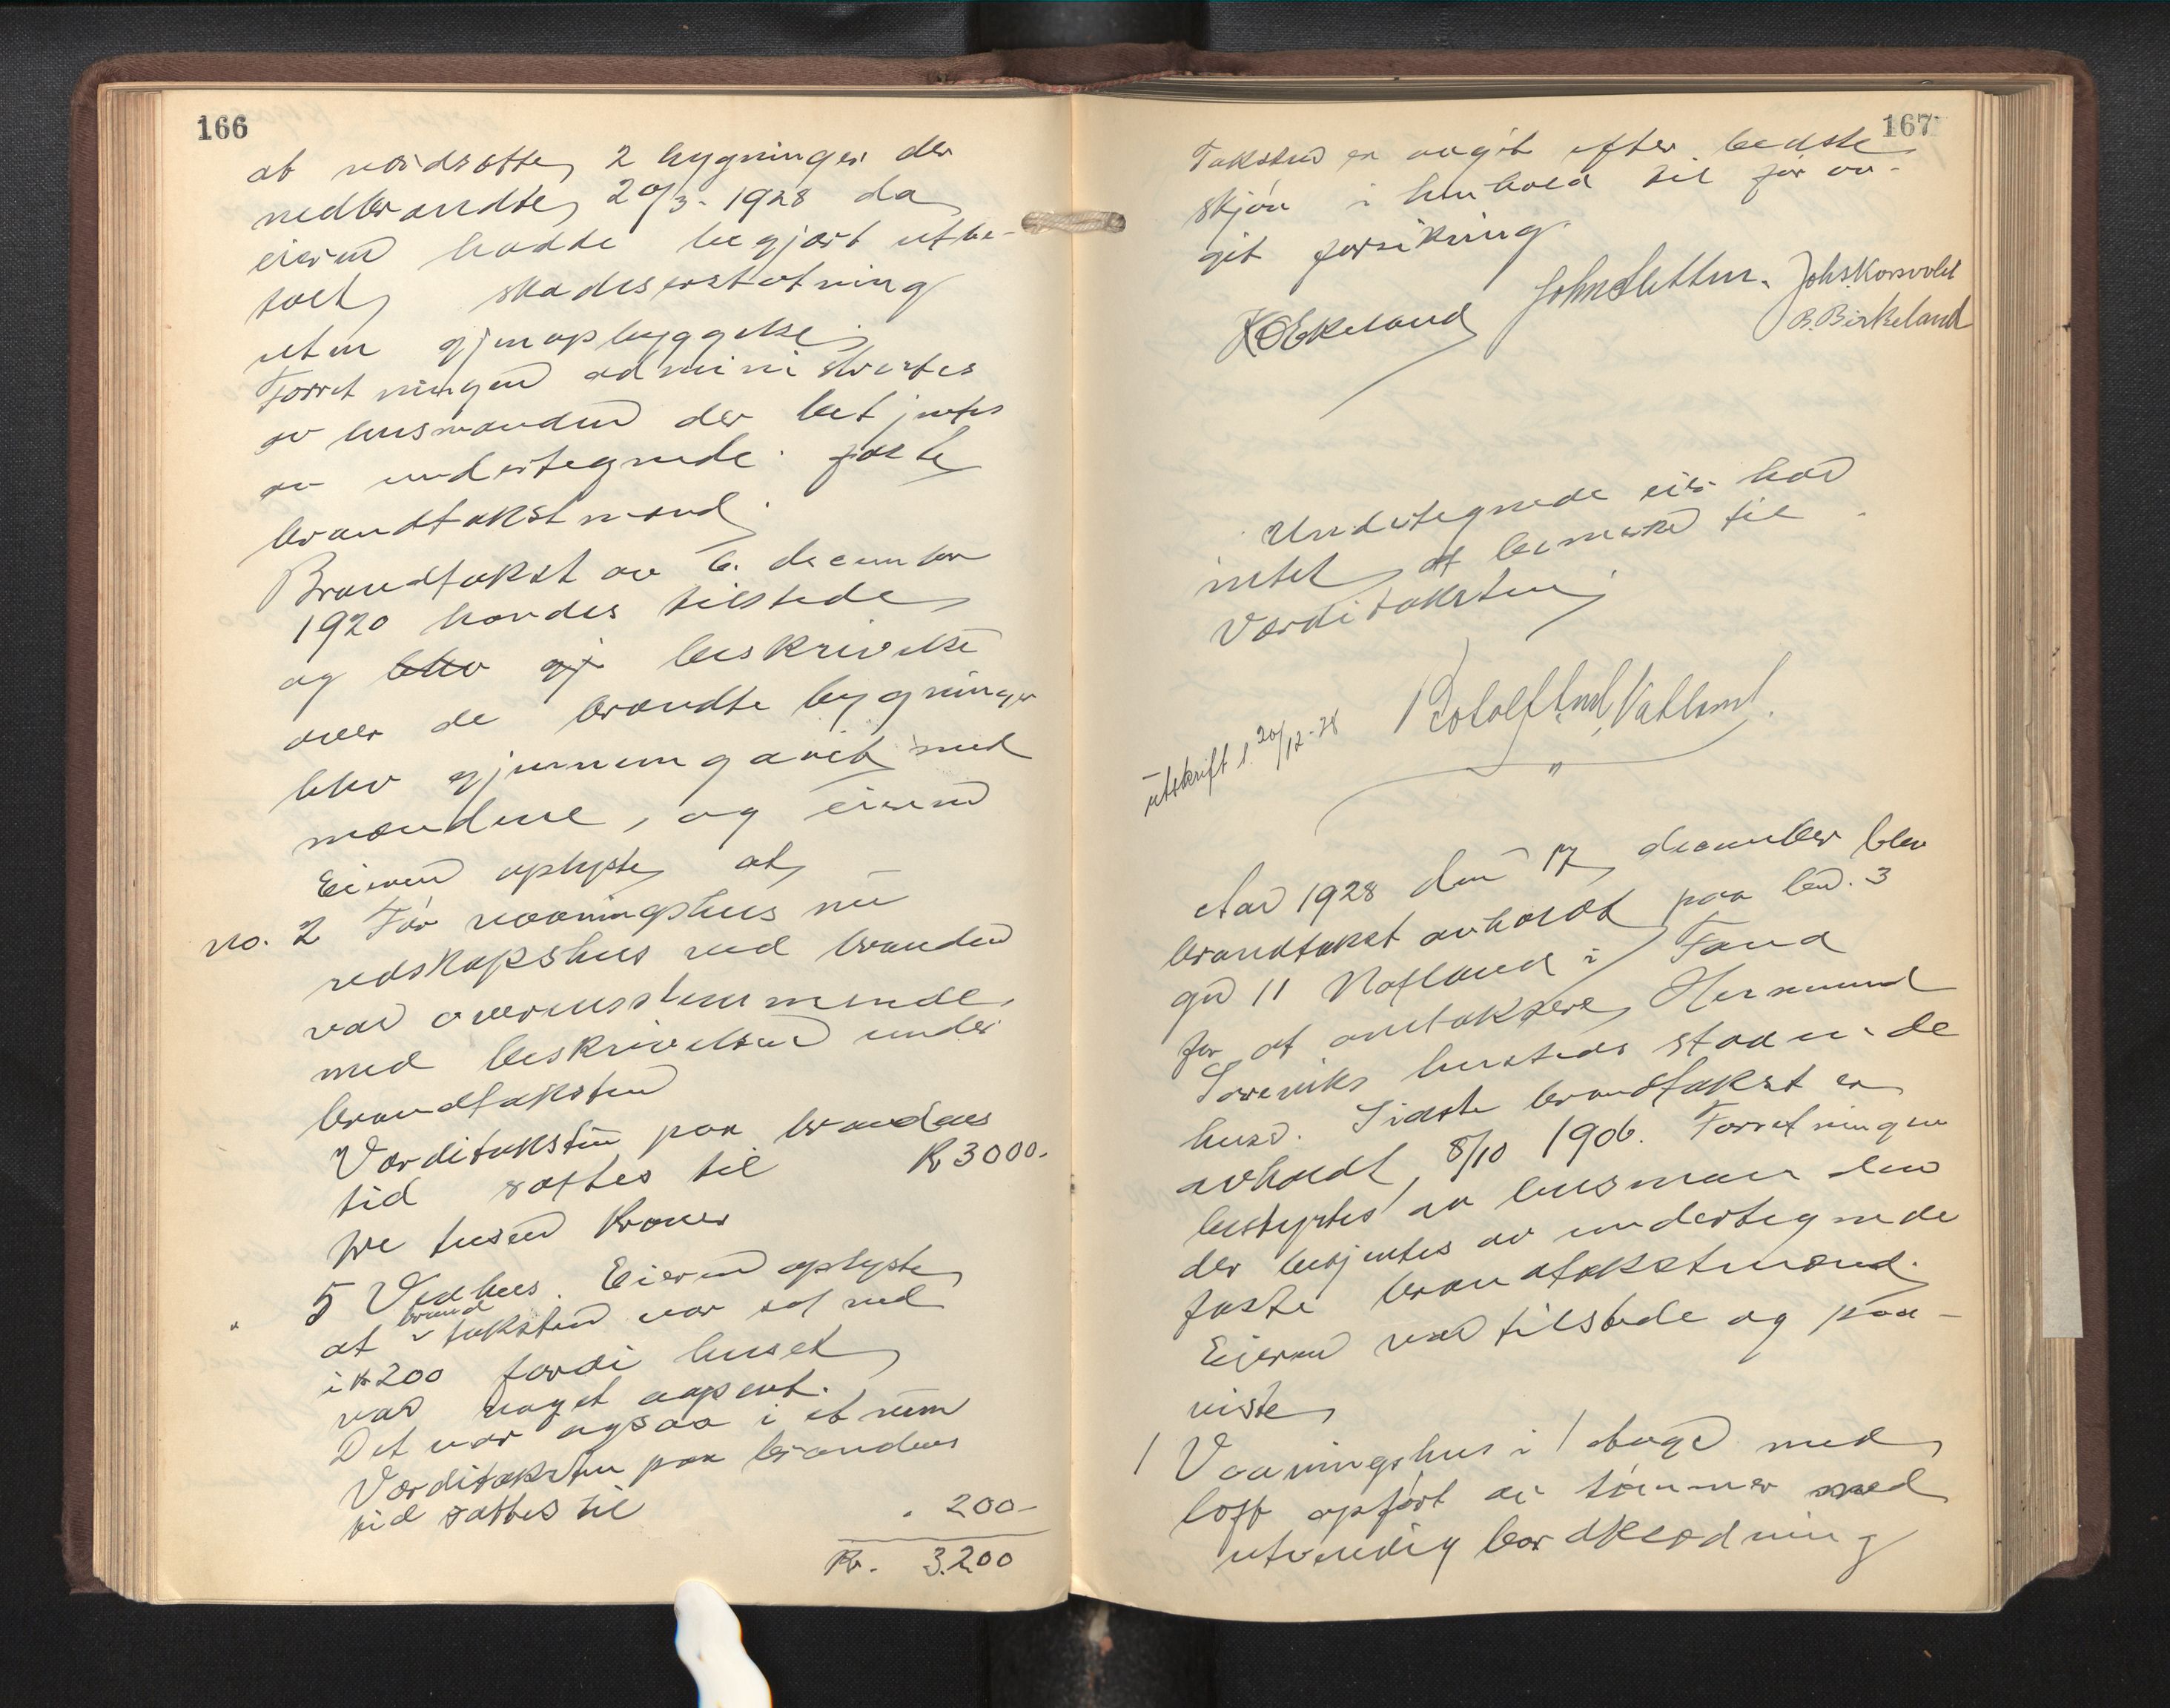 166
at værdsætte 2 bygninger der
nedbrandte 20/3-1928 da
eieren hadde begjært utbe-
talt skadeserstatning
uten gjenopbyggelse.
Forretningen administrertes
av lensmanden der betjentes
av undertegnede faste
brandtakstmænd.
Brandtakst av 6. december
1920 havdes tilstede
og blev gj beskrivelse
over de brændte bygninger
blev gjennemgaaet med
mændene, og eieren
Eieren oplyste at
no. 2 Før vaaningshus nu
redskapshus ved branden
var overensstemmende
med beskrivelsen under
brandtaksten
Værditaksten paa brandens
tid sættes til Kr 3000.-
tre tusen kroner
" 5 Vedhus. Eieren oplyste
at brandtaksten var sat ned
i kr 200 fordi huset
var noget aapent.
Det var ogsaa i et rum
Værditaksten paa brandens
tid sættes til " 200-
Kr. 3.200
167
Taksten er avgit efter bedste
skjøn i henhold til før av-
git forsikring.
K O Ekeland John Sletten. Johs. Korsvold
B. Birkeland
Undertegnede eier har
intet at bemerke til
Værditaksten
Vatland.
utskrift s. 20/12-28
"
Aar 1928 den 17 december blev
brandtakst avholdt paa bno. 3
gno 11 Natland i Fana
for at omtaksere Hermund
husteds staaende
huse. Sidste brandtakst er
avholdt 8/10 1906. Forretningen
bestyrtes av lensmanden
der betjentes av undertegnede
faste brandtakstmænd.
Eieren var tilstede og paa-
viste
1 Vaaningshus i 1 etage med
loft opført av tømmer med
utvendig bordklædning